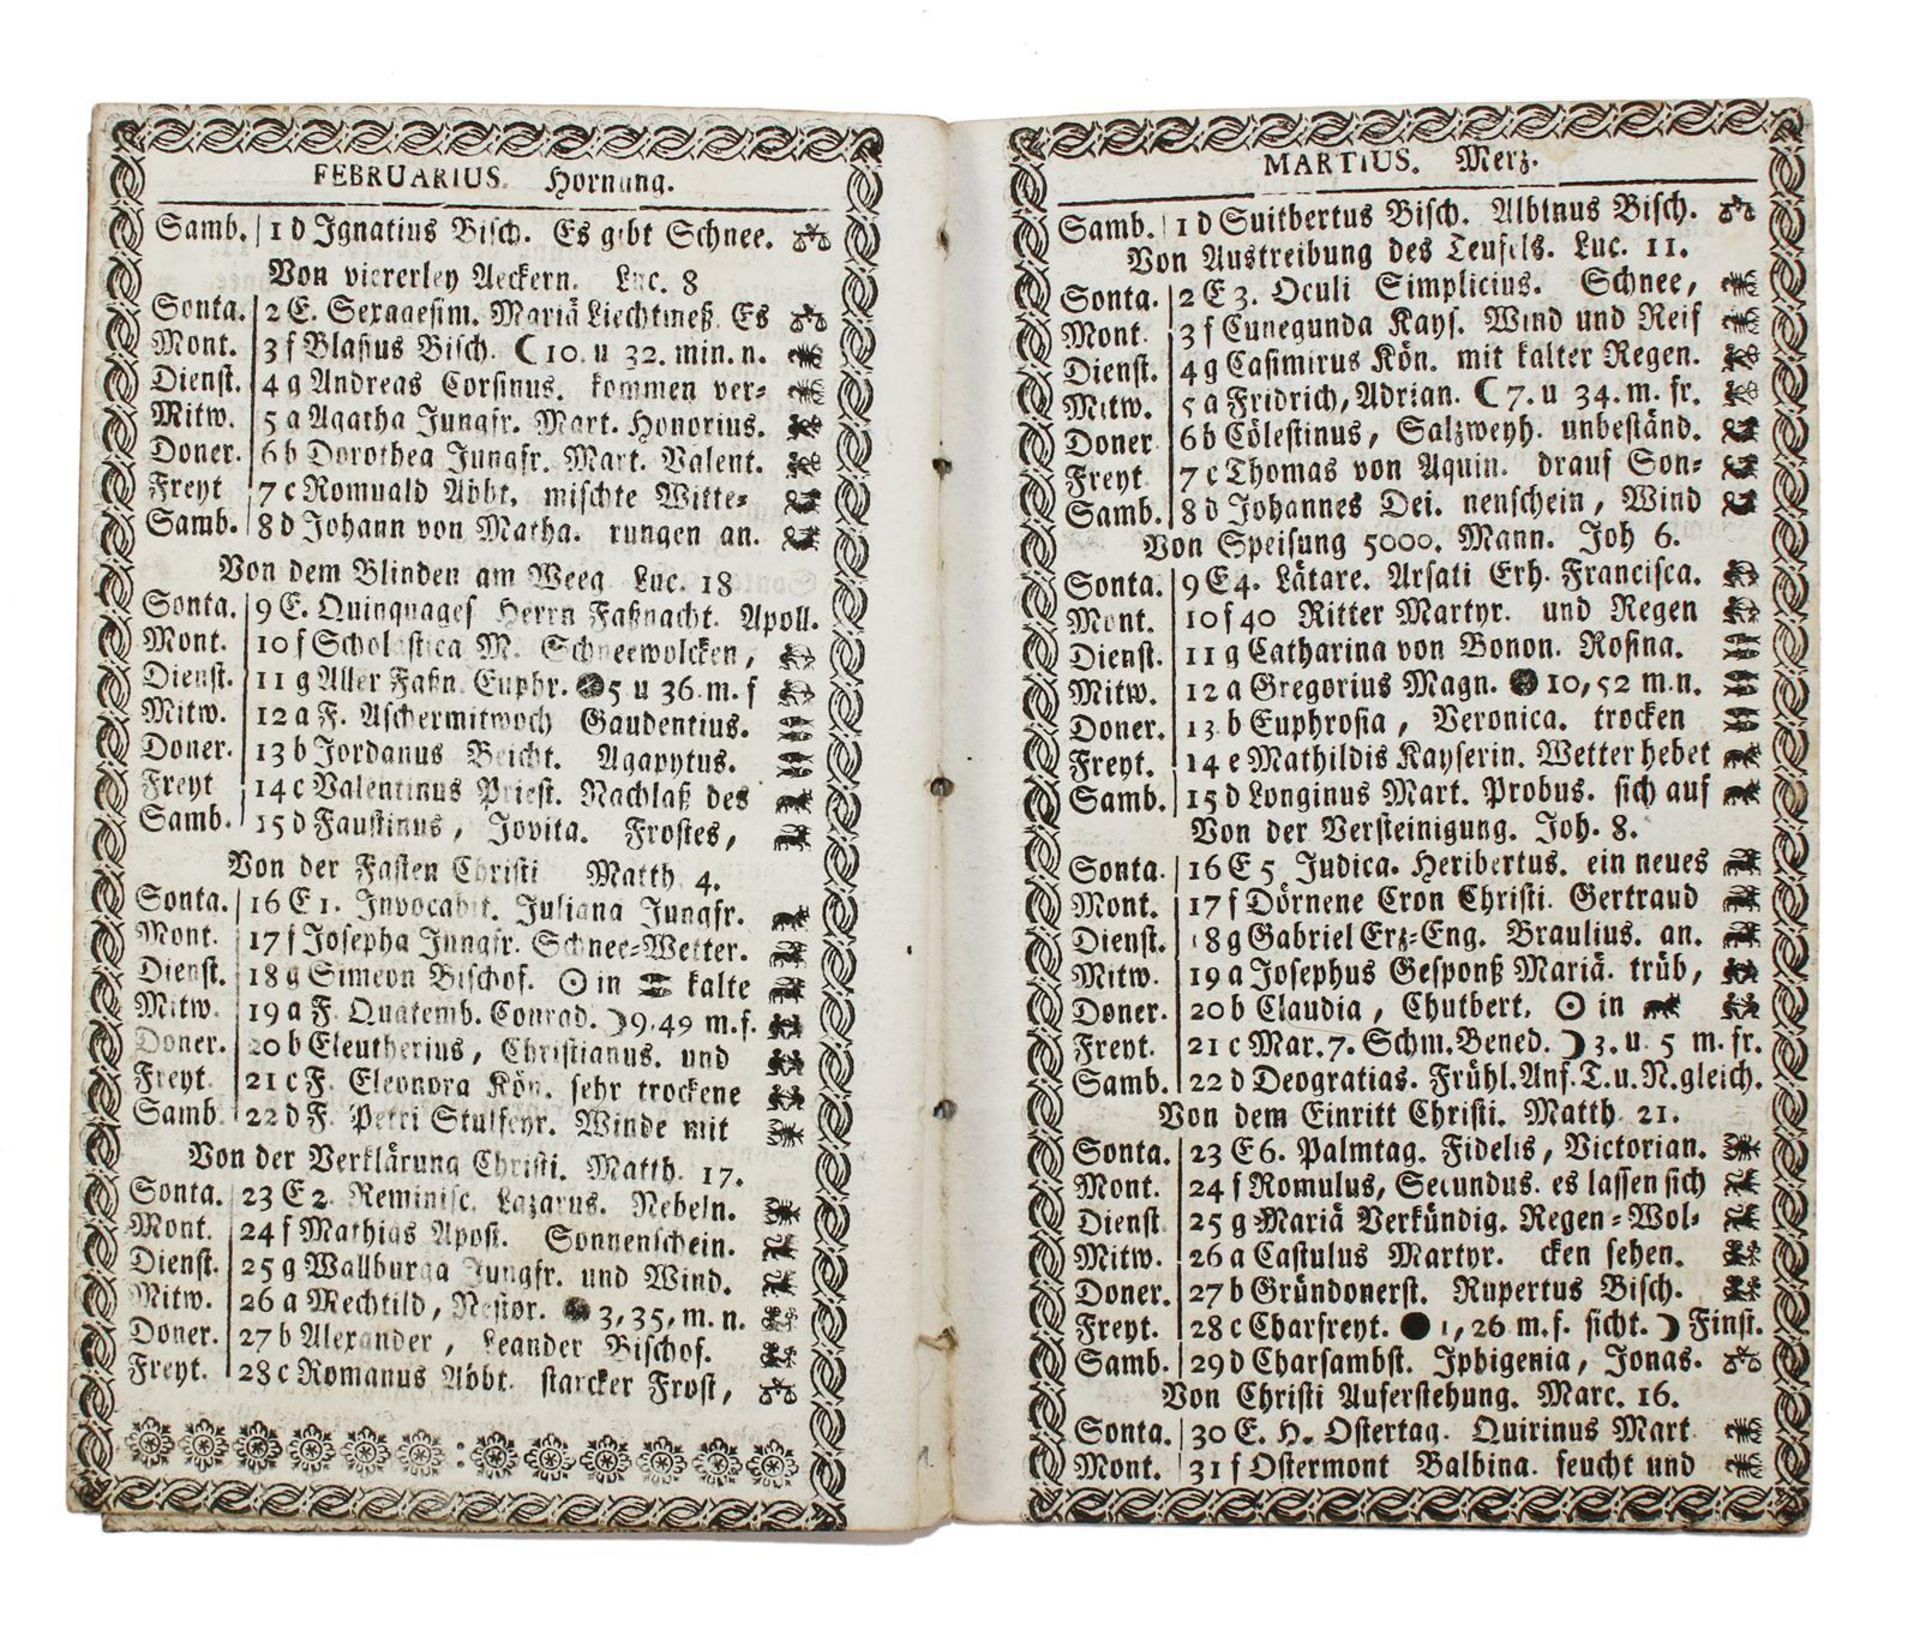 FEBRUARIUS. Hornung.
Samb. 1 d Ignatius Bisch. Es gibt Schnee.
Von viererley Aeckern. Luc. 8
Sonta. 2 E. Sexagesim. Mariä Liechtmeß Es
Mont. 3 f Blasius Bisch. ☾ 10. u 32. min. n.
Dienst. 4 g Andreas Corsinus. kommen ver=
Mitw. 5 a Agatha Jungfr. Mart. Honorius.
Doner. 6 b Dorothea Jungfr. Mart. Valent.
Freyt 7 c Romuald Abbt. mischte Witte=
Samb. 8 d Johann von Matha. rungen an.
Von dem Blinden am Weeg Luc. 18
Sonta. 9 E. Quinquages Herrn Faßnacht. Apoll.
Mont. 10 f Scholastica M. Schneewolcken,
Dienst. 11 g Aller Faßn. Euphr. ● 5 u 36. m. f
Mitw. 12 a F. Aschermitwoch Gaudentius.
Doner. 13 b Jordanus Beicht. Agapytus.
Freyt 14 c Valentinus Priest. Nachlaß des
Samb. 15 d Faustinus, Jovita. Frostes,
Von der Fasten Christi Matth 4.
Sonta. 16 E 1. Invocabit. Juliana Jungfr.
Mont. 17 f Josepha Jungfr. Schnee=Wetter.
Dienst. 18 g Simeon Bischof. ☉ in ♓ kalte
Mitw. 19 a F. Quatemb. Conrad. ☽ 9. 49 m. f.
Doner. 20 b Eleutherius, Christianus. und
Freyt. 21 c F. Eleonora Kön. sehr trockene
Samb 22 d F. Petri Stulfeyr. Winde mit
Von der Verklärung Christi. Matth. 17.
Sonta. 23 E 2. Reminisc. Lazarus. Nebeln.
Mont. 24 f Mathias Apost. Sonnenschein.
Dienst. 25 g Wallburga Jungfr. und Wind.
Mitw. 26 a Mechtild, Nestor. ● 3, 35, m. n.
Doner. 27 b Alexander, Leander Bischof.
Freyt. 28 c Romanus Abbt. starcker Frost,
MARTIUS. Merz.
Samb. 1 d Suitbertus Bisch. Albinus Bisch.
Von Austreibung des Teufels. Luc. 11.
Sonta. 2 E 3. Oculi Simplicius. Schnee,
Mont. 3 f Cunegunda Kays. Wind und Reif
Dienst. 4 g Casimirus Kön. mit kalter Regen.
Mitw. 5 a Fridrich, Adrian. ☾ 7. u 34. m. fr.
Doner 6 b Cölestinus, Salzweyh. unbeständ.
Freyt 7 c Thomas von Aquin. drauf Son=
Samb. 8 d Johannes Dei. nenschein, Wind
Von Speisung 5000. Mann. Joh 6.
Sonta. 9 E 4. Lätare. Arsati Erh. Francisca.
Mont. 10 f 40 Ritter Martyr. und Regen
Dienst. 11 g Catharina von Bonon. Rosina.
Mitw. 12 a Gregorius Magn. ● 10, 52 m. n.
Doner. 13 b Euphrosia, Veronica. trocken
Freyt. 14 e Mathildis Kayserin. Wetter hebet
Samb. 15 d Longinus Mart. Probus. sich auf
Von der Versteinigung. Joh. 8.
Sonta. 16 E 5 Judica. Heribertus. ein neues
Mont. 17 f Dörnene Cron Christi. Gertraud
Dienst. 18 g Gabriel Erz=Eng. Braulius. an.
Mitw. 19 a Josephus Gesponß Mariä. trüb,
Doner. 20 b Claudia, Chutbert. ☉ in ♈
Freyt. 21 c Mar. 7. Schm. Bened. ☽ 3. u. 5 m. fr.
Samb. 22 d Deogratias. Frühl. Anf. T. u. N. gleich.
Von dem Einritt Christi. Matth 21.
Sonta. 23 E 6. Palmtag. Fidelis, Victorian.
Mont. 24 f Romulus, Secundus. es lassen sich
Dienst 25 g Mariä Verkündig. Regen=Wol=
Mitw. 26 a Castulus Martyr. cken sehen.
Doner. 27 b Gründonerst. Rupertus Bisch.
Freyt. 28 c Charfreyt. ● 1, 26 m. f. sicht. ☽ Finst.
Samb. 29 d Charsambst. Iphigenia, Jonas.
Von Christi Auferstehung. Marc. 16.
Sonta. 30 E. H. Ostertag. Quirinus Mart
Mont. 31 f Ostermont Balbina. feucht und